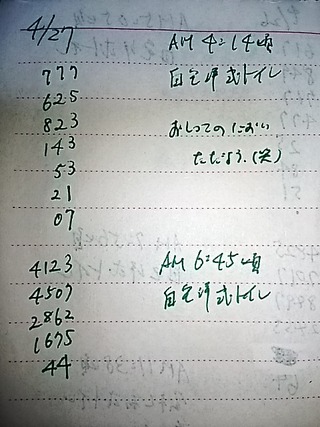 4/27
AM 4:14頃
777 自宅洋式トイレ
625
823 おしっこのにおい
143 ただよう.(笑)
53
21
07
4123 AM 6:45頃
4507 自宅洋式トイレ
2862
1675
44